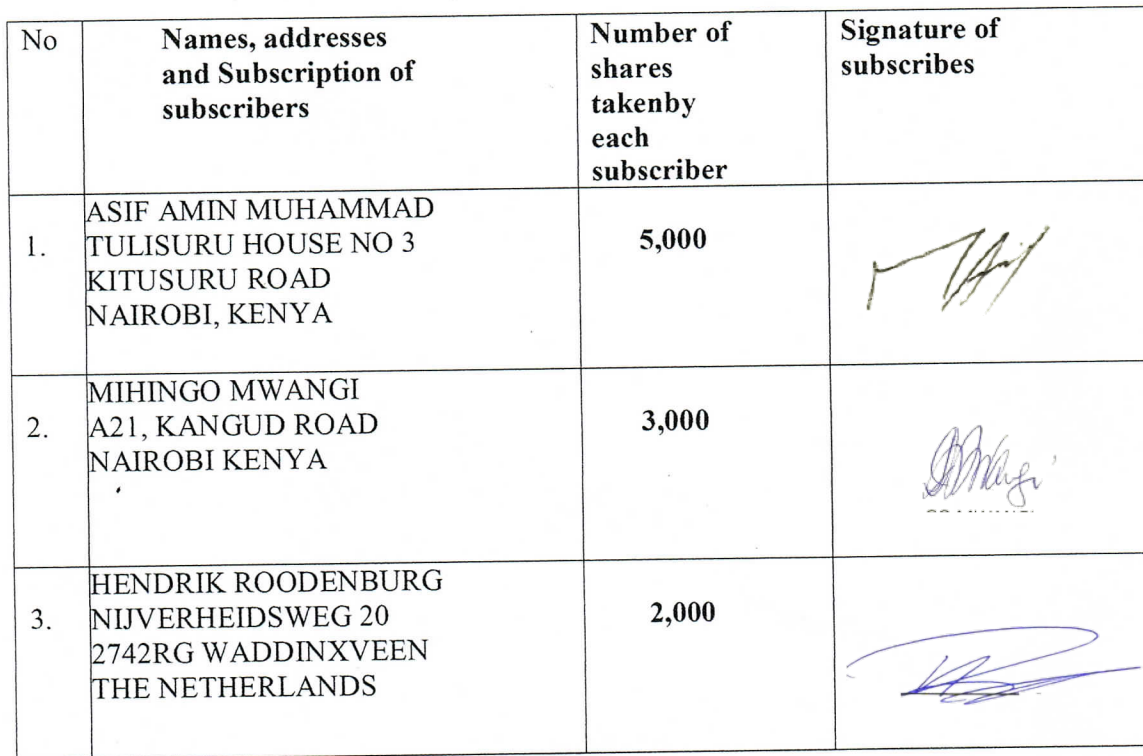 No
Names, addresses
and Subscription of
subscribers
Number of
shares
takenby
each
subscriber
Signature of
subscribes
1.
ASIF AMIN MUHAMMAD
TULISURU HOUSE NO 3
KITUSURU ROAD
NAIROBI, KENYA
5,000
2.
MIHINGO MWANGI
A21, KANGUD ROAD
NAIROBI KENYA
3,000
3.
HENDRIK ROODENBURG
NIJVERHEIDSWEG 20
2742RG WADDINXVEEN
THE NETHERLANDS
2,000